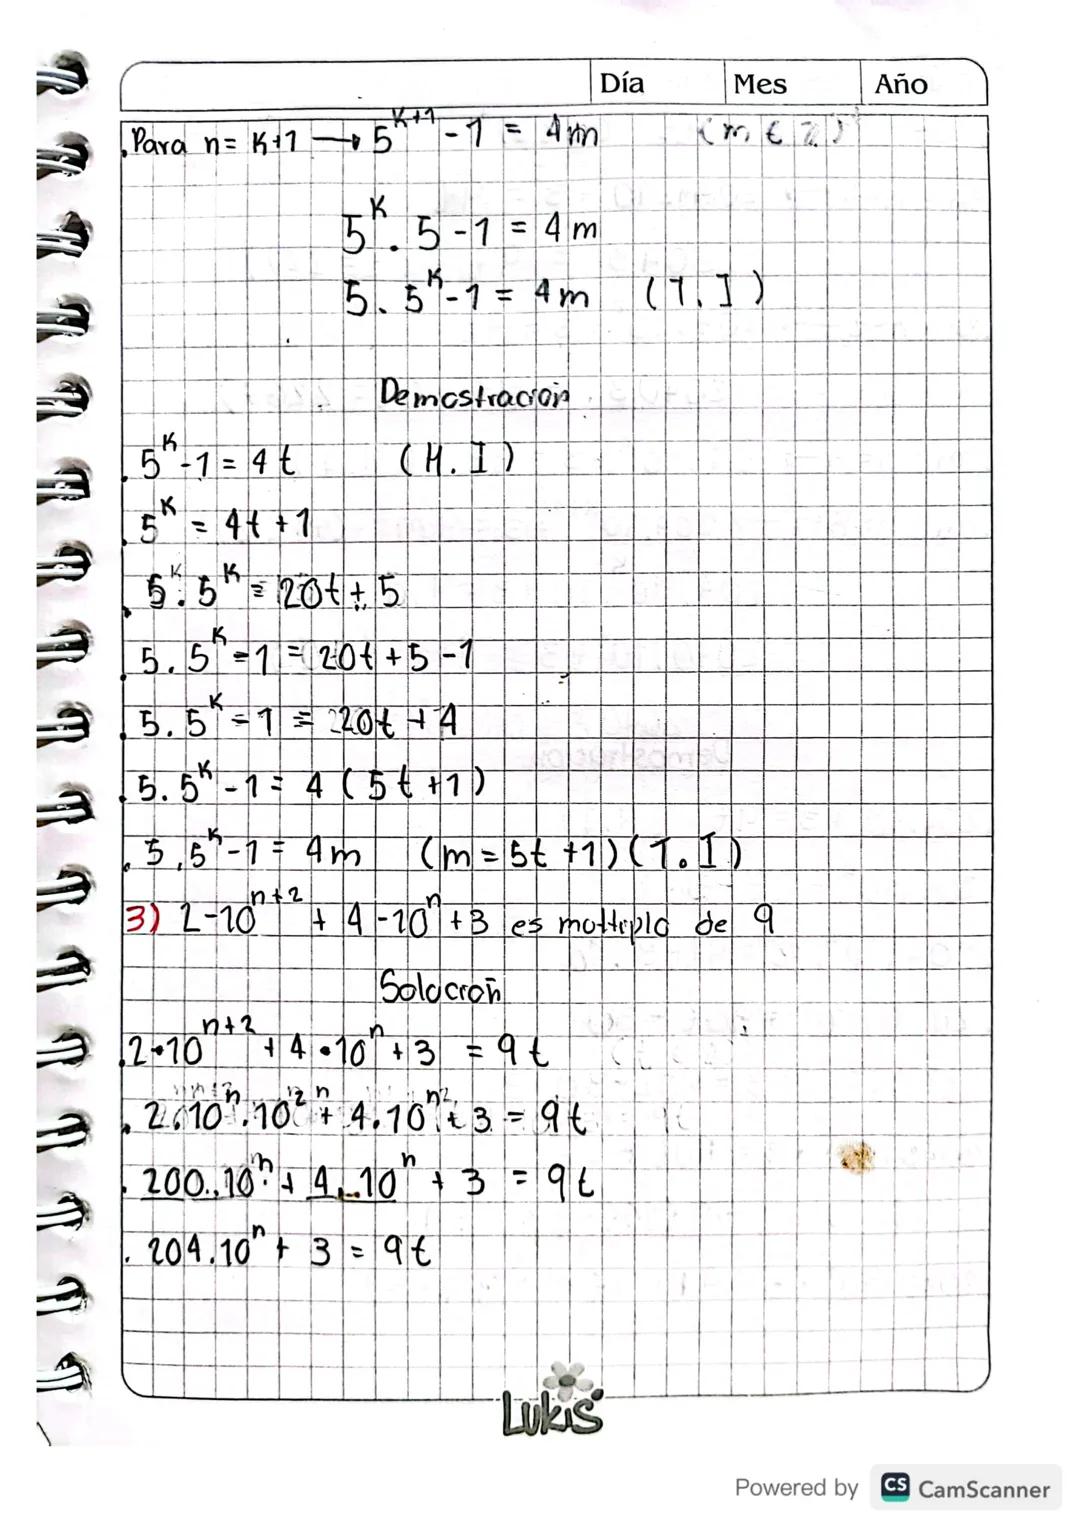 Día Mes Año
Para n = K+1 → 5^(K+1) - 1 = 4m (m ∈ Z)
5^K . 5 - 1 = 4m
5 . 5^K - 1 = 4m (T.I)
Demostración
5^K - 1 = 4t (H.I)
5^K = 4t + 1
5 . 5^K = 20t + 5
5 . 5^K - 1 = 20t + 5 - 1
5 . 5^K - 1 = 20t + 4
5 . 5^K - 1 = 4 (5t + 1)
5 . 5^K - 1 = 4m (m = 5t + 1) (T.I)
3) 2 - 10^(n+2) + 4 - 10^n + 3 es multiplo de 9
Solución
2 • 10^(n+2) + 4 • 10^n + 3 = 9t
2 . 10^n . 10^2 + 4 . 10^n + 3 = 9t
200 . 10^n + 4 . 10^n + 3 = 9t
204 . 10^n + 3 = 9t
Lukis
Powered by CS CamScanner